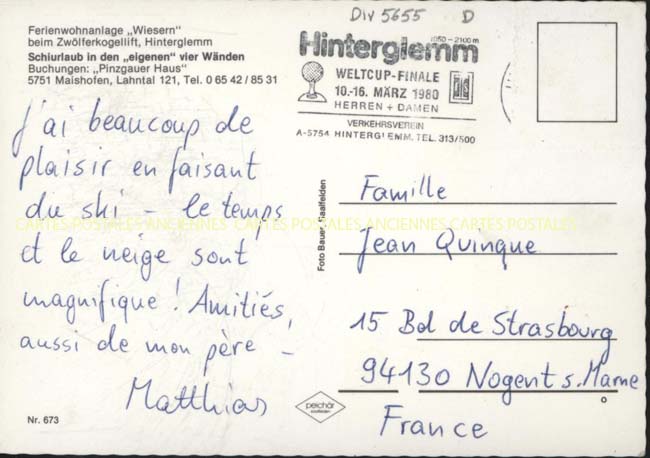 Ferienwohnanlage „Wiesern“
beim Zwölferkogellift, Hinterglemm
Schiurlaub in den „eigenen“ vier Wänden
Buchungen: „Pinzgauer Haus“
5751 Maishofen, Lahntal 121, Tel. 0 65 42 / 85 31
Div 5655 D
1050-2100 m
Hinterglemm
WELTCUP-FINALE
10.-16. MÄRZ 1980
HERREN + DAMEN
VERKEHRSVEREIN
A-5754 HINTERGLEMM. TEL. 313/500
J'ai beaucoup de
plaisir en faisant
du ski – le temps
et le neige sont
magnifique ! Amitiés,
aussi de mon père –
Matthias
CARTES POSTALES ANCIENNES CARTES POSTALES ANCIENNES CARTES POSTALES
Foto Bauer, Saalfelden
Famille
Jean Quinque
15 Bd de Strasbourg
94130 Nogent s. Marne
France
Nr. 673
peichär